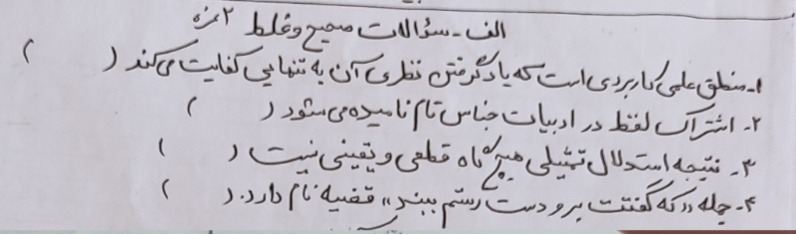 الف - سؤالات صحیح و غلط ۲ نمره
۱- منطق علمی کاربردی است که یادگرفتن نظری آن به تنهایی کفایت می‌کند ( )
۲- اشتراک لفظ در ادبیات جناس تام نامیده می‌شود ( )
۳- نتیجه استدلال تمثیلی هیچ‌گاه قطعی و یقینی نیست ( )
۴- جمله «که گفتت برو دست رستم ببند» قضیه نام دارد. ( )